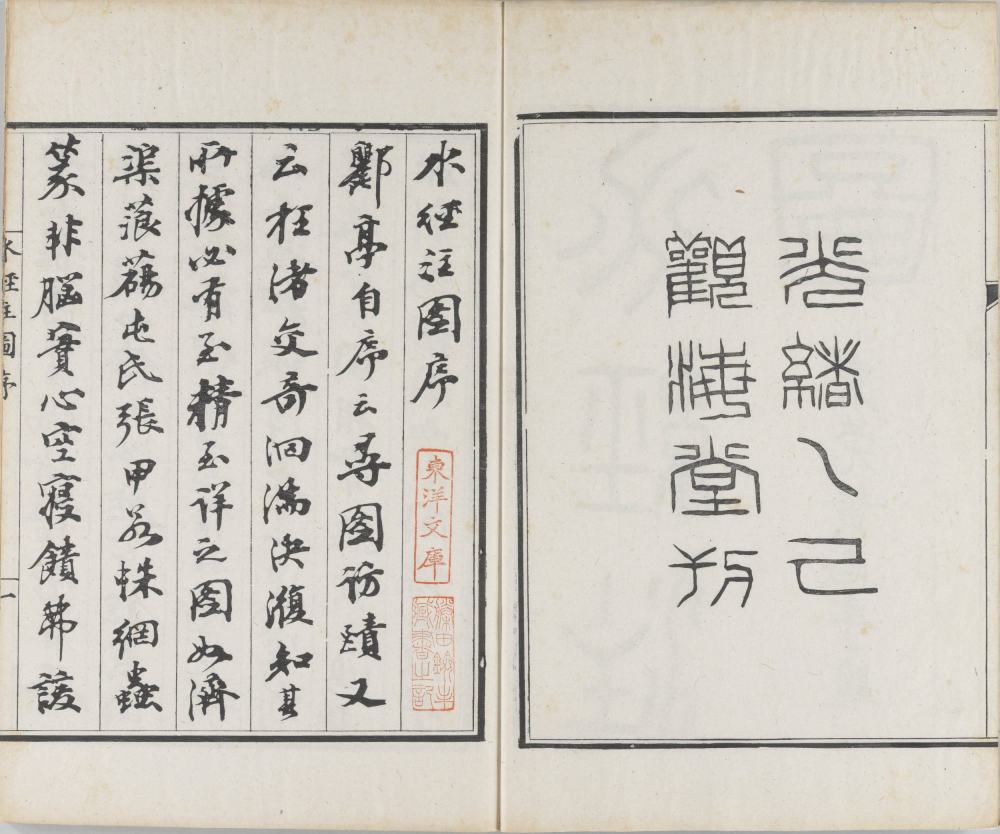 光緒乙巳
觀海堂刊
水經注圖序
東洋文庫
藤田劍峯
藏書之記
酈亭自序云尋圖訪賾又
云枉渚交奇洄湍決澓知其
所據必有至精至詳之圖如濟
渠蒗蕩屯氏張甲若蛛網蟲
篆非腦實心空寢饋弗諼
水經注圖序
一